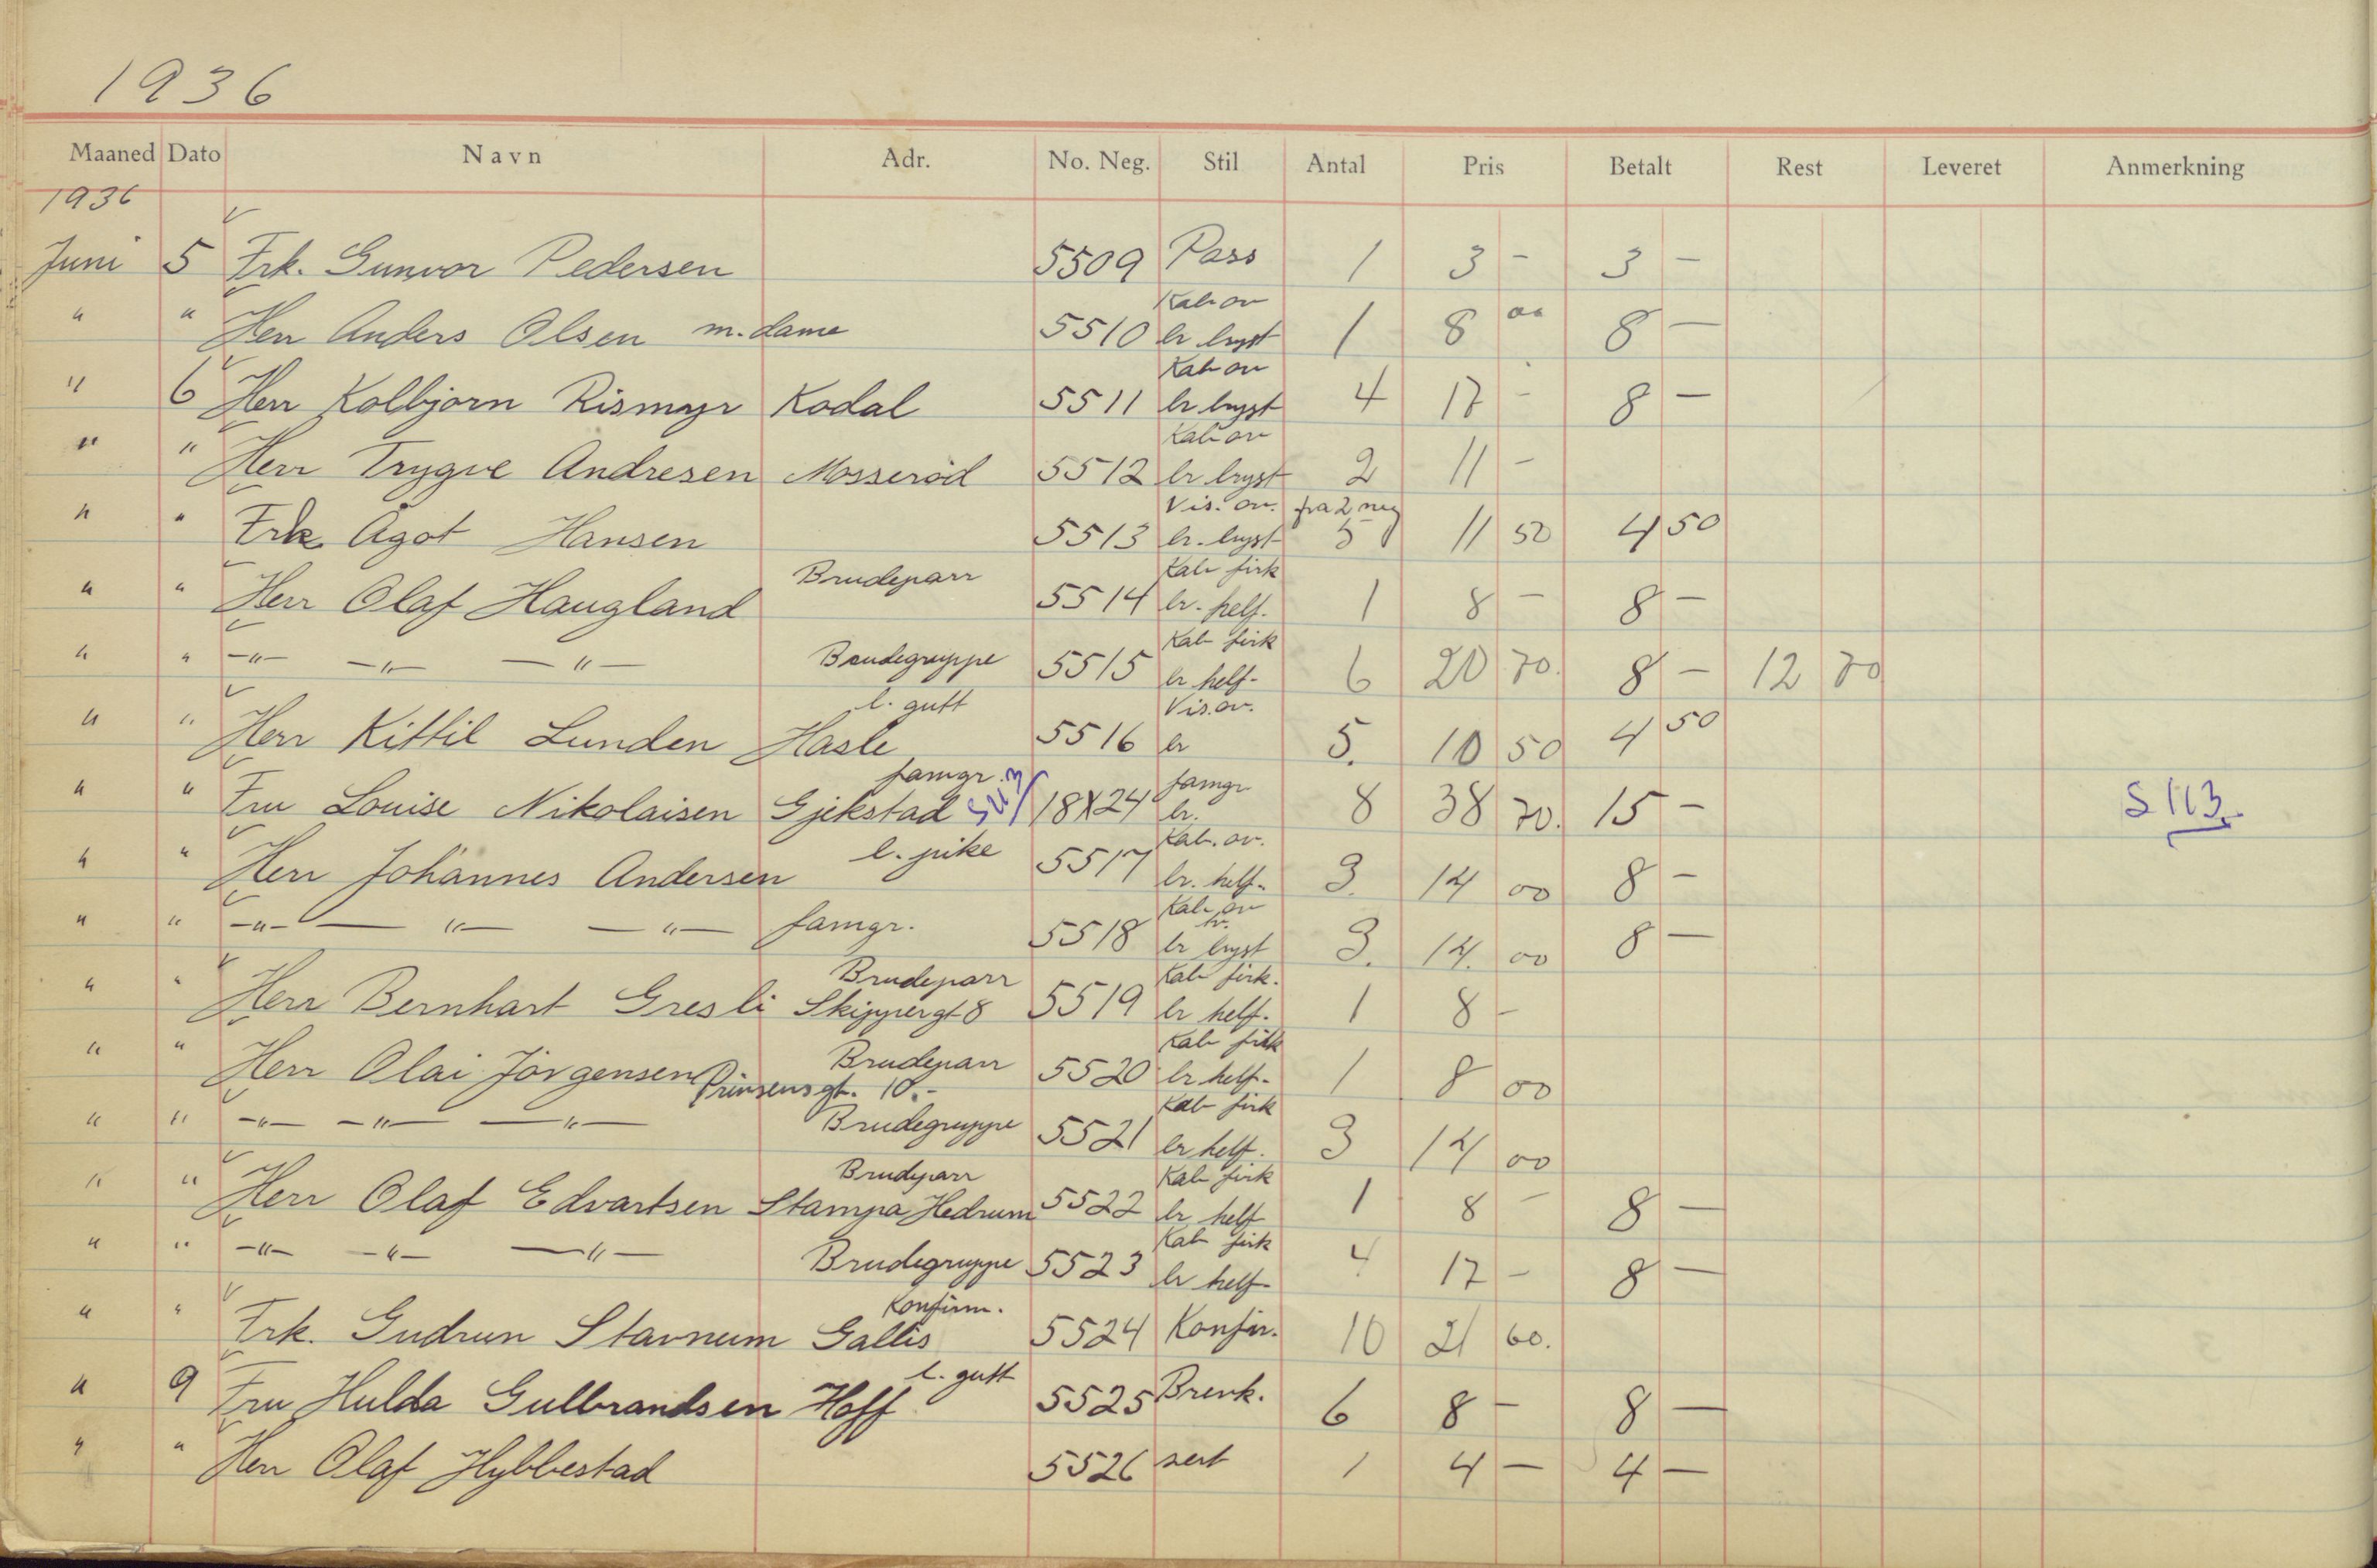 1936
Maaned Dato Navn Adr. No. Neg. Stil Antal Pris Betalt Rest Leveret Anmerkning
1936
Juni 5 Frk. Gunvor Pedersen 5509 Pass 1 3 - 3 -
Kab ov
" " Herr Anders Olsen m. dame 5510 br bryst 1 8 00 8 -
Kab ov
" 6 Herr Kolbjørn Rismyr Kodal 5511 br bryst 4 17 - 8 -
Kab ov
" " Herr Trygve Andresen Mosserød 5512 br bryst 2 11 -
Vis. ov. fra 2 neg
" " Frk. Ågot Hansen 5513 br. bryst 5 11 50 4 50
Brudeparr Kab firk
" " Herr Olaf Haugland 5514 br. helf. 1 8 - 8 -
Kab firk
" " -"- -"- -"- Brudegruppe 5515 br helf. 6 20 70. 8 - 12 70
l. gutt Vis. ov.
" " Herr Kittil Lunden Hasle 5516 br 5. 10 50 4 50
famgr. famgr
" " Fru Louise Nikolaisen Gjekstad S113 18X24 br. 8 38 70. 15 - S 113.
l. pike Kab. ov.
" " Herr Johannes Andersen 5517 br. helf. 3. 14 00 8 -
Kab ov
" " -"- -"- -"- famgr. 5518 br bryst 3. 14. 00 8 -
Brudeparr Kab firk.
" " Herr Bernhart Gresli Skippergt 8 5519 br helf. 1 8 -
Brudeparr Kab firk
" " Herr Olai Jörgensen Prinsensgt. 10.- 5520 br helf. 1 8 00
Kab firk
" " -"- -"- -"- Brudegruppe 5521 br helf. 3 14 00
Brudeparr Kab firk
" " Herr Olaf Edvartsen Stampa Hedrum 5522 br helf 1 8 - 8 -
Kab firk
" " -"- -"- -"- Brudegruppe 5523 br helf 4 17 - 8 -
Konfirm.
" " Frk. Gudrun Stavnum Gallis 5524 Konfir. 10 21 60.
l. gutt
" 9 Fru Hulda Gulbrandsen Hoff 5525 Brevk. 6 8 - 8 -
" " Herr Olaf Hybbestad 5526 sert 1 4 - 4 -